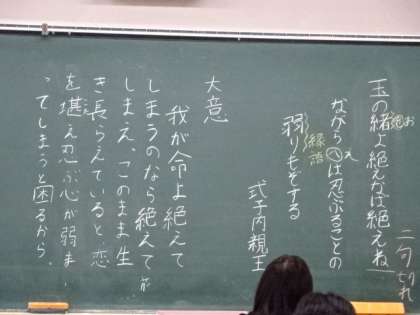 玉の緒よ絶えなば絶えね
お
二句切れ
ながらへば忍ぶることの
え
弱りもぞする
縁語
式子内親王
大意
我が命よ絶えて
しまうのなら絶えて
しまえ、このまま生
き長らえていると、恋
を堪え忍ぶ心が弱ま
ってしまうと困るから。